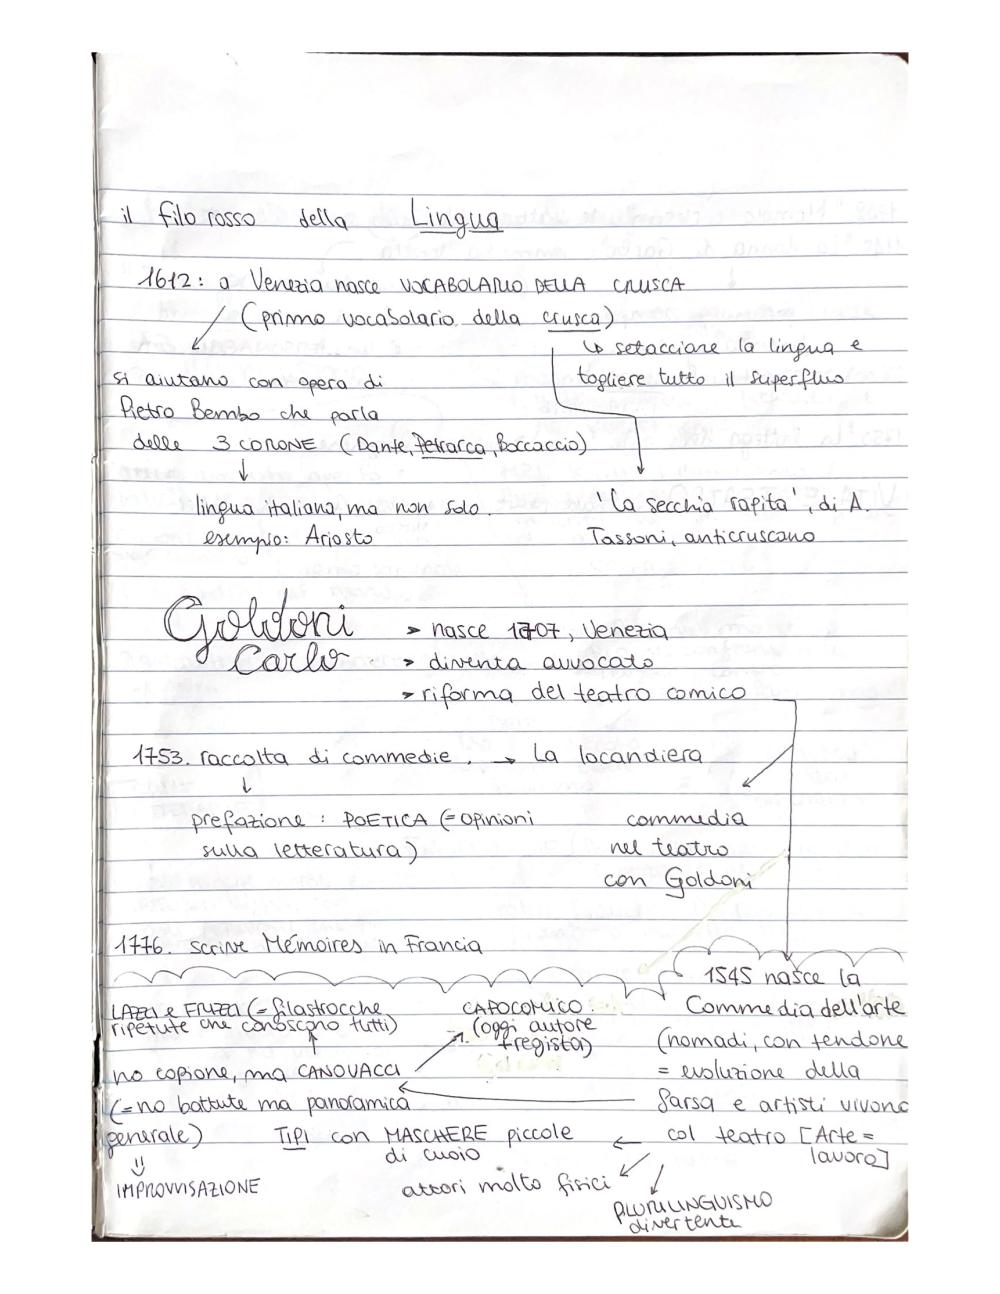 il filo rosso della Lingua
1612: a Venezia nasce VOCABOLARIO DELLA CRUSCA
(primo vocabolario della crusca)
↳ setacciare la lingua e
togliere tutto il superfluo
si aiutano con opera di
Pietro Bembo che parla
delle 3 CORONE (Dante, Petrarca, Boccaccio)
lingua italiana, ma non solo.
esempio: Ariosto
'La secchia rapita', di A.
Tassoni, anticruscano
Goldoni
Carlo
> nasce 1707, Venezia
> diventa avvocato
> riforma del teatro comico
1753. raccolta di commedie. → La locandiera
prefazione: POETICA (= opinioni
sulla letteratura)
commedia
nel teatro
con Goldoni
1776. scrive Mémoires in Francia
1545 nasce la
Commedia dell'arte
(nomadi, con tendone
= evoluzione della
farsa e artisti vivono
col teatro [Arte =
lavoro]
LAZZI e FRIZZI (= filastrocche
ripetute che conoscono tutti)
CAPOCOMICO.
(oggi autore
+regista)
no copione, ma CANOVACCI
(= no battute ma panoramica
generale)
IMPROVVISAZIONE
TIPI con MASCHERE piccole
di cuoio
attori molto fisici
PLURILINGUISMO
divertente